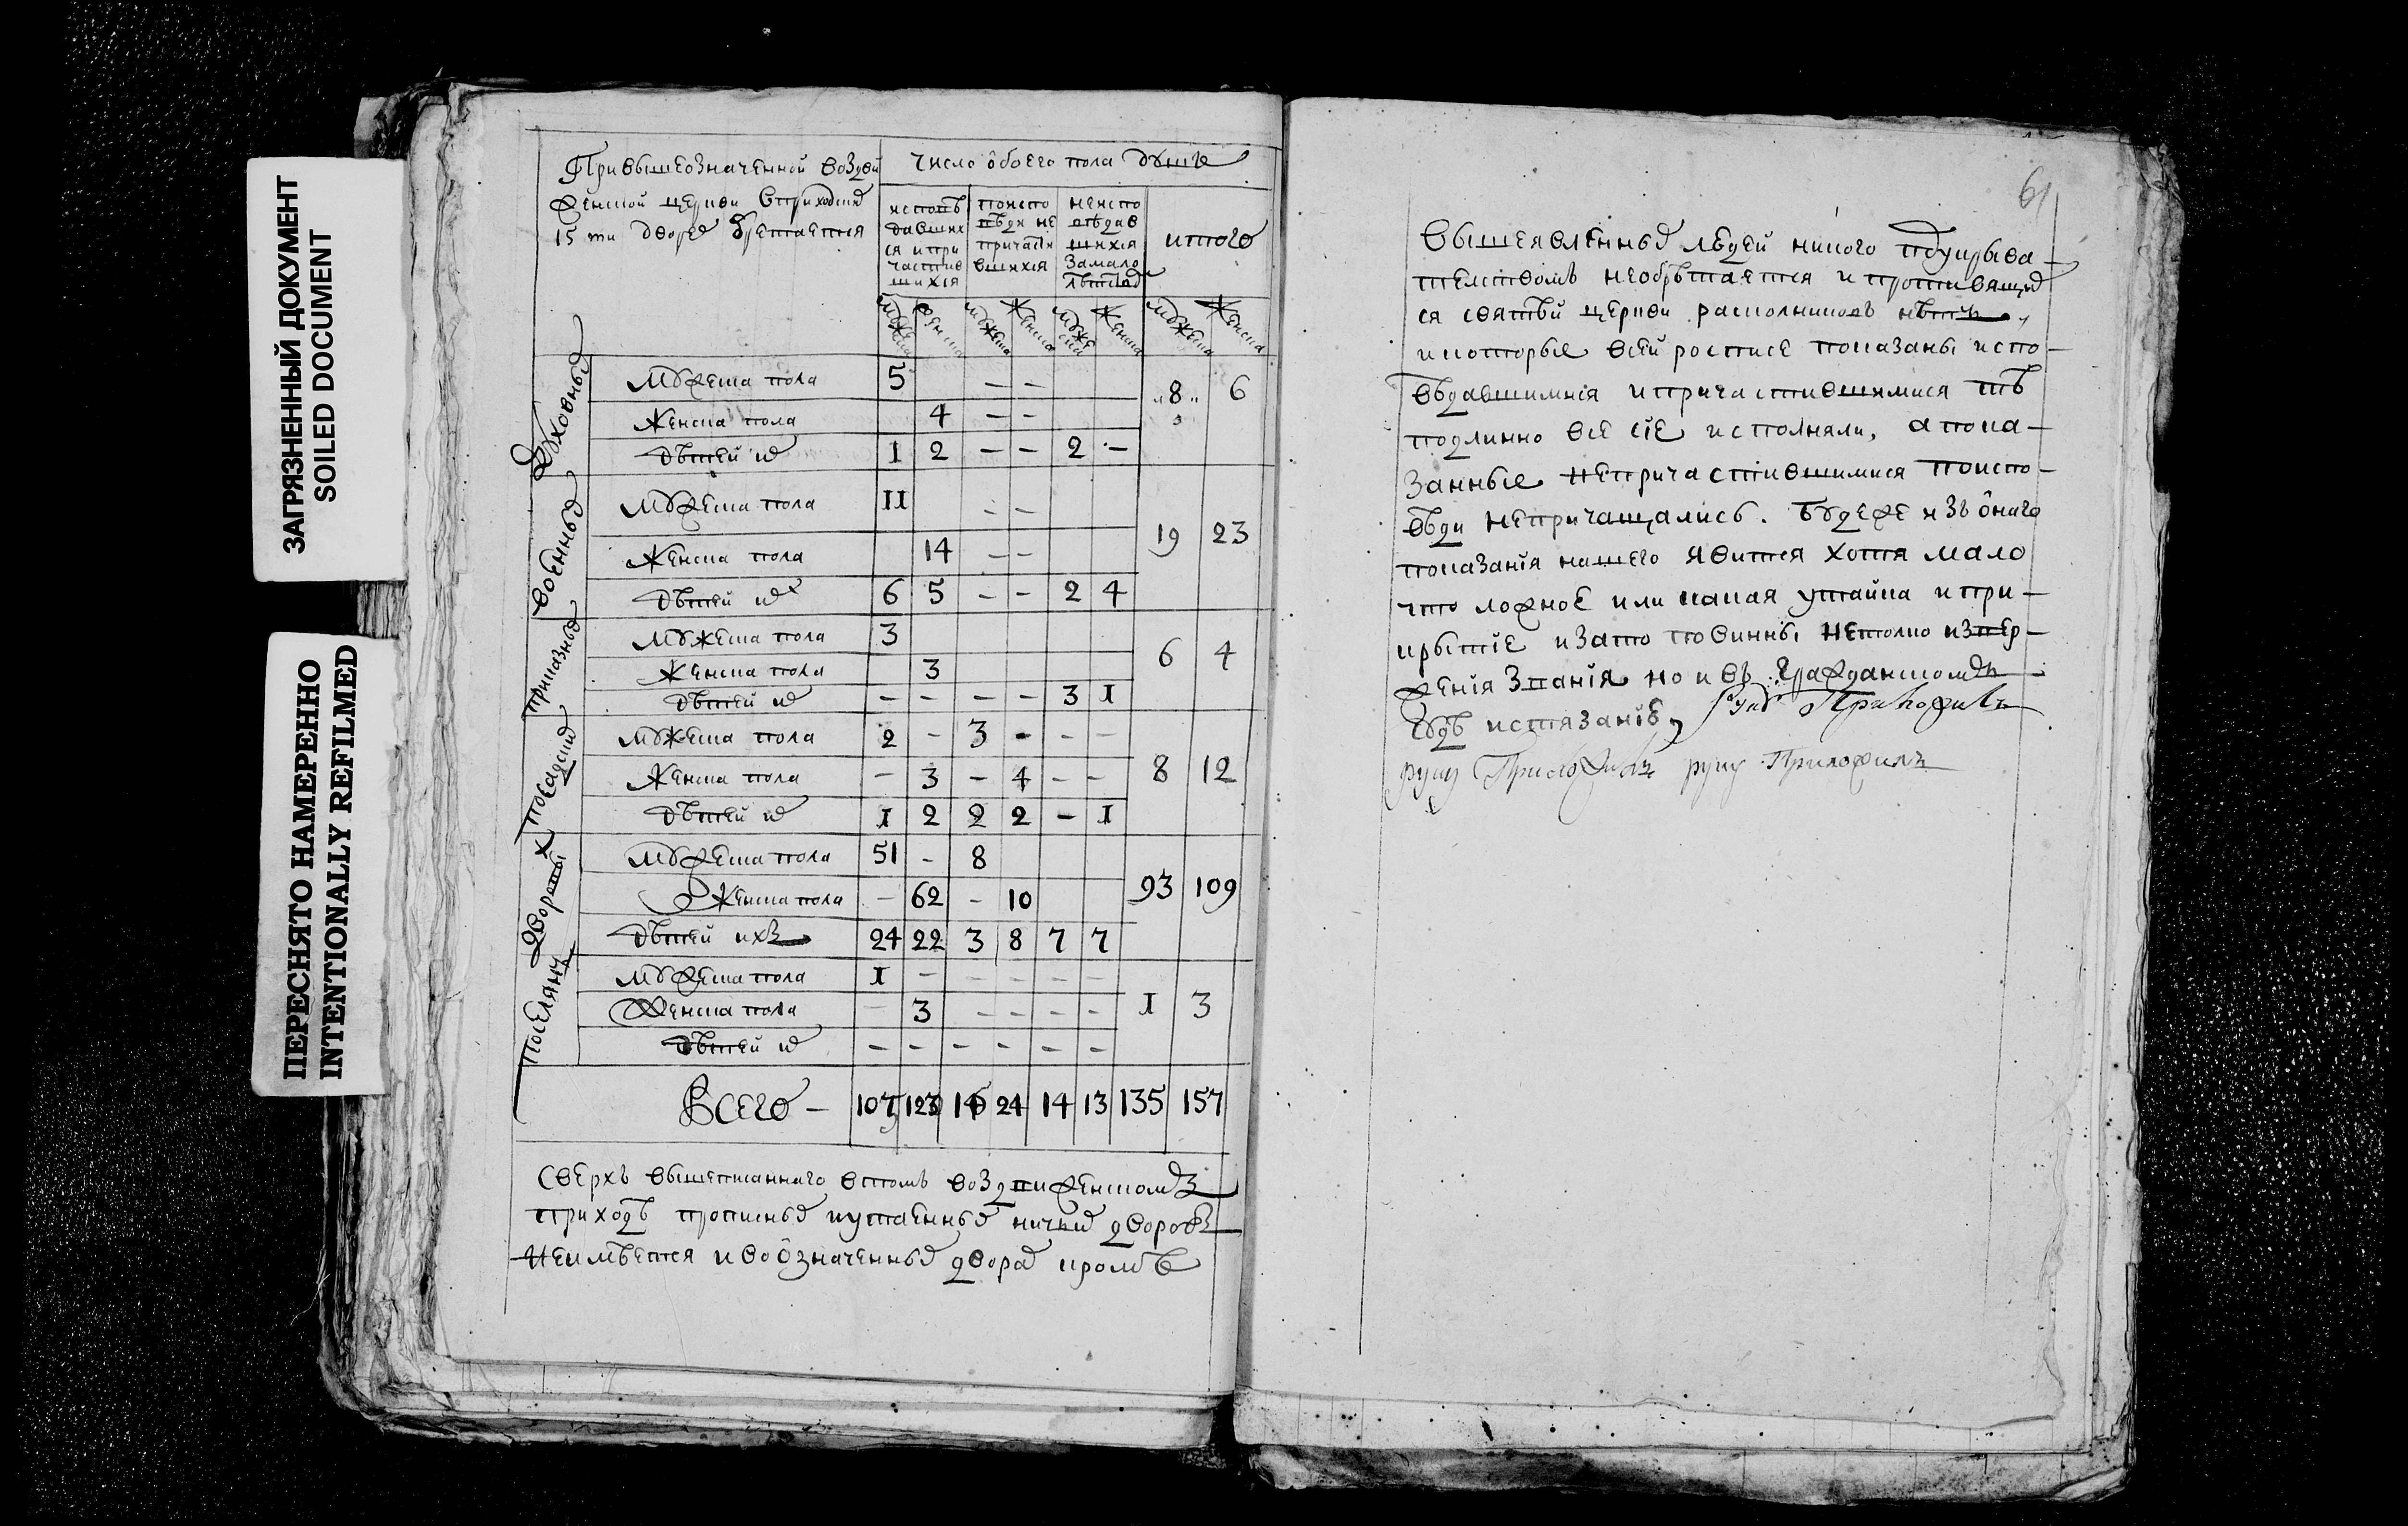 ЗАГРЯЗНЕННЫЙ ДОКУМЕНТ
SOILED DOCUMENT
ПЕРЕСНЯТО НАМЕРЕННО
INTENTIONALLY REFILMED
Привышеозначенной воздви
женской церкви вприходѣ
15 ти дворѣ
число обоего пола душъ
исповѣ
давших
ся и при
частив
шихся
поиспо
вѣди не
причасти
вшихся
неиспо
вѣдав
шихся
замало
лѣтств
итого
мужеска женска мужеска женска мужеска женска мужеска женска
духовных
мужеска пола 5 – – 8 6
женска пола 4 – –
дѣтей их 1 2 – – 2 –
военных
мужеска пола 11 – – 19 23
женска пола 14 – –
дѣтей их 6 5 – – 2 4
приказных
мужеска пола 3 6 4
женска пола 3
дѣтей их – – – – 3 1
посадских
мужеска пола 2 – 3 – – – 8 12
женска пола – 3 – 4 – –
дѣтей их 1 2 2 2 – 1
дворовых
мужеска пола 51 – 8 93 109
женска пола – 62 – 10
дѣтей ихъ 24 22 3 8 7 7
поселянъ
мужеска пола 1 – – – – – 1 3
женска пола – 3 – – – –
дѣтей их – – – – – –
Всего – 107 123 16 24 14 13 135 157
Сверхъ вышеписаннаго втомъ воздвиженскомъ
приходѣ прописных иутаенных ничьих дворовъ
Неимѣется ивоозначенных дворах кромѣ
61
вышеявленных людей никого подукрыва–
телствомъ необрѣтается и противящих
ся святѣй церкви расколниковъ нѣтъ,
икоторые всей росписе показаны испо–
вѣдавшимися ипричастившимися тѣ
подлинно все сіе исполняли, апока–
занные непричастившимися поиспо–
вѣди непричащались. Будеже изъ онаго
показанія нашего явится хотя мало
что ложное или какая утайка ипри–
крытіе изато повинны нетокмо извер–
женія званія но ивъ гражданскомъ
судѣ истязанію, руку Приложилъ
руку Приложилъ руку Приложилъ